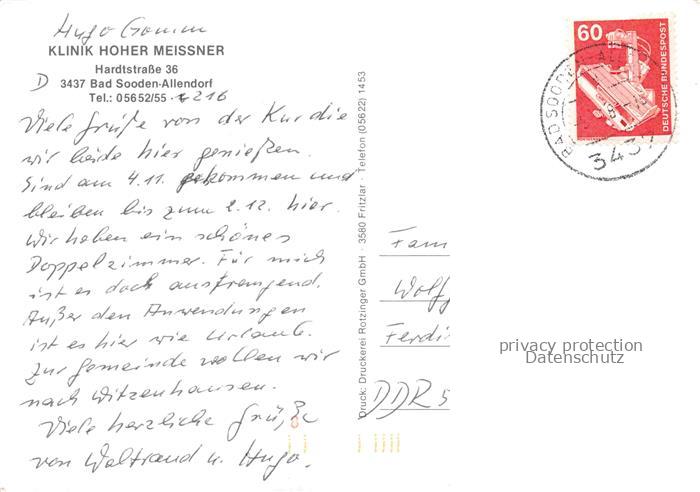 Hugo Gomm
KLINIK HOHER MEISSNER
Hardtstraße 36
D 3437 Bad Sooden-Allendorf
Tel.: 05652/55 - 6216
Viele Grüße von der Kur die
wir beide hier genießen.
Sind am 4.11. gekommen und
bleiben bis zum 2.12. hier.
Wir haben ein schönes
Doppelzimmer. Für mich
ist es doch anstrengend.
Außer den Anwendungen
ist es hier wie Urlaub.
Zur Gemeinde wollen wir
nach Witzenhausen.
Viele herzliche Grüße
von Waltraud u. Hugo.
Druck: Druckerei Rotzinger GmbH · 3580 Fritzlar · Telefon (05622) 1453
60
DEUTSCHE BUNDESPOST
BAD SOODEN-ALL
3437
Fam
Wolfg
Ferdi
DDR 5
privacy protection
Datenschutz